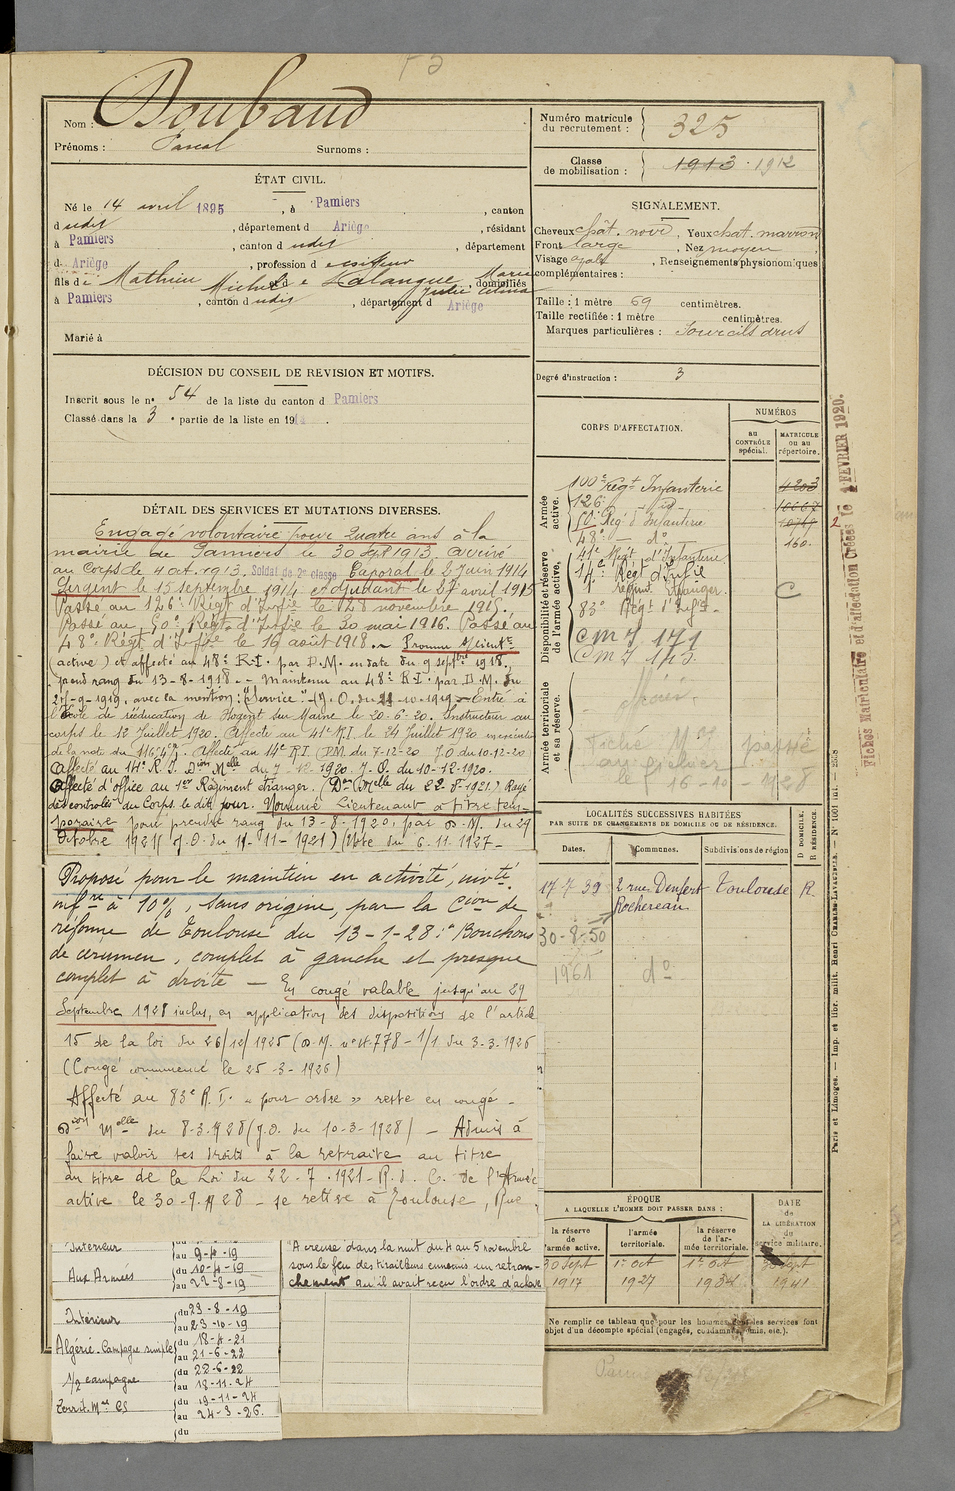 Nom : Doubaud
Prénoms : Pascal Surnoms :
ÉTAT CIVIL.
Né le 14 avril 1895, à Pamiers, canton
d udit, département d Ariège, résidant
à Pamiers, canton d udit, département
d Ariège, profession d e coiffeur
fils de Mathieu Michel et e Lalangue Marie, domiciliés
à Pamiers, canton d udit, département d Ariège
Marié à
DÉCISION DU CONSEIL DE REVISION ET MOTIFS.
Inscrit sous le n° 54 de la liste du canton d Pamiers
Classé dans la 3e partie de la liste en 191
DÉTAIL DES SERVICES ET MUTATIONS DIVERSES.
Engagé volontaire pour Quatre ans à la
mairie de Pamiers le 30 7bre 1913. Arrivé
au Corps le 4 oct. 1913. Soldat de 2e classe Caporal le 2 Juin 1914
Sergent le 15 septembre 1914 adjudant le 27 avril 1915
Passé au 126e Régt d'Infie le 28 novembre 1915.
Passé au 50e Régt d'Infie le 30 mai 1916. Passé au
48e Régt d'Infie le 16 août 1918. Promu s/lieutt
(active) et affecté au 48e R.I. par D.M. en date du 9 septbre 1918,
pour rang du 13-8-1918. Maintenu au 48e R.I. par D.M. du
27-9-1919, avec la mention: "Service" (J.O. du 21-10-1919. Entré à
l'École de rééducation de Nogent sur Marne le 20-6-20. Instructeur au
corps le 12 Juillet 1920. Affecté au 41e R.I. le 24 Juillet 1920
Affecté au 14e R.I. (D.M. du 7-12-20 J.O. du 10-12-20
Affecté au 14e R.I. Dion Melle du 7-12-1920. J.O. du 10-12-1920.
Affecté d'office au 1er Régiment étranger. (Don Melle du 22-8-1921) Rayé
des contrôles du Corps le dit jour. Nommé Lieutenant à titre tem-
poraire pour prendre rang du 13-8-1920, par D.M. du 29
Octobre 1921 (J.O. du 11-11-1921) (Note du 6.11.1927-
Proposé pour le maintien en activité, invté
infre à 10%, sans origine, par la Cion de
réforme de Toulouse du 13-1-28: "Bouchons
de cérumen, complet à gauche et presque
complet à droite - En congé valable jusqu'au 29
Septembre 1928 inclus, en application des dispositions de l'article
15 de la loi du 26/12/1925 (D.M. n° 4.778-1/1 du 3-3-1926
(Congé commencé le 25-3-1926)
Affecté au 83e R.I. "pour ordre" reste en congé -
Dion Melle du 8-3-1928 (J.O. du 10-3-1928) - Admis à
faire valoir ses droits à la retraite au titre
au titre de la Loi du 22.7.1921 - R.d.C. de l'Armée
active le 30-9-1928 - se retire à Toulouse, Rue
Intérieur au 9-4-19
Aux Armées du 10-4-19
au 22-8-19
Intérieur du 23-8-19
au 23-10-19
Algérie. Campagne simple du 18-4-21
au 21-6-22
1/2 campagne du 22-6-22
au 18-11-24
du 19-11-24
au 24-3-26.
du
"A creusé dans la nuit du 4 au 5 novembre
sous le feu des tirailleurs ennemis un retran-
chement qu'il avait reçu l'ordre d'achever
Numéro matricule du recrutement : 325
Classe de mobilisation : 1913 . 1912
SIGNALEMENT.
Cheveux chât. noir, Yeux chat. marron
Front large, Nez moyen
Visage ovale, Renseignements physionomiques
complémentaires :
Taille : 1 mètre 69 centimètres.
Taille rectifiée : 1 mètre centimètres.
Marques particulières : Sourcils drus
Degré d'instruction : 3
CORPS D'AFFECTATION.
NUMÉROS
AU CONTRÔLE spécial.
MATRICULE ou au répertoire.
Armée active.
100e Régt Infanterie 4203
126e - id - 10667
50e Régt d'Infanterie
48e - do 160.
Disponibilité et réserve de l'armée active.
41e Régt d'Infanterie
14e Régt d'Infie
1 régim. Étranger. C
83e Régt d'Infie
CMI 171
CMI 173
Armée territoriale et sa réserve.
Fiché passé
le 16-10-1928
LOCALITÉS SUCCESSIVES HABITÉES
PAR SUITE DE CHANGEMENTS DE DOMICILE OU DE RÉSIDENCE.
Dates. Communes. Subdivisions de région D DOMICILE. R RÉSIDENCE
17-7-39 2 rue Denfert Rochereau Toulouse R.
30-8-50
1961 do
ÉPOQUE
A LAQUELLE L'HOMME DOIT PASSER DANS :
la réserve de l'armée active.
l'armée territoriale.
la réserve de l'armée territoriale.
DATE de LA LIBÉRATION du service militaire.
30 Sept 1917
1er Oct 1927
1er Oct
30 Sept 1941
Ne remplir ce tableau que pour les hommes dont les services font
objet d'un décompte spécial (engagés, condamnés, omis, etc.).
Fiches Matriculaire et d'affectation Créées le 1 FEVRIER 1920.
Paris et Limoges. — Imp. et libr. milit. Henri CHARLES-LAVAUZELLE. —